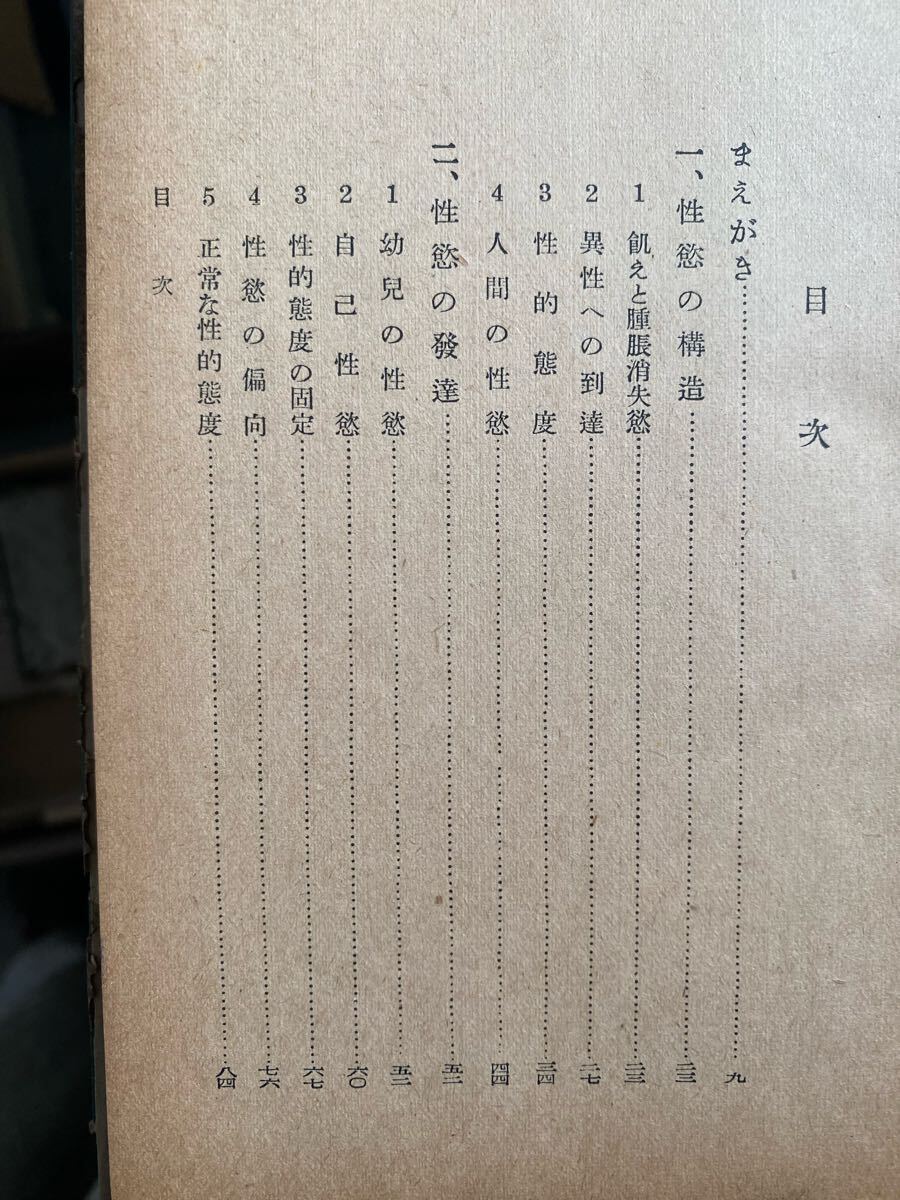 目次
まえがき……九
一、性慾の構造……二三
1 飢えと腫脹消失慾……二三
2 異性への到達……二七
3 性的態度……三四
4 人間の性慾……四四
二、性慾の發達……五二
1 幼兒の性慾……五二
2 自己性慾……六〇
3 性的態度の固定……六七
4 性慾の偏向……七六
5 正常な性的態度……八四
目次